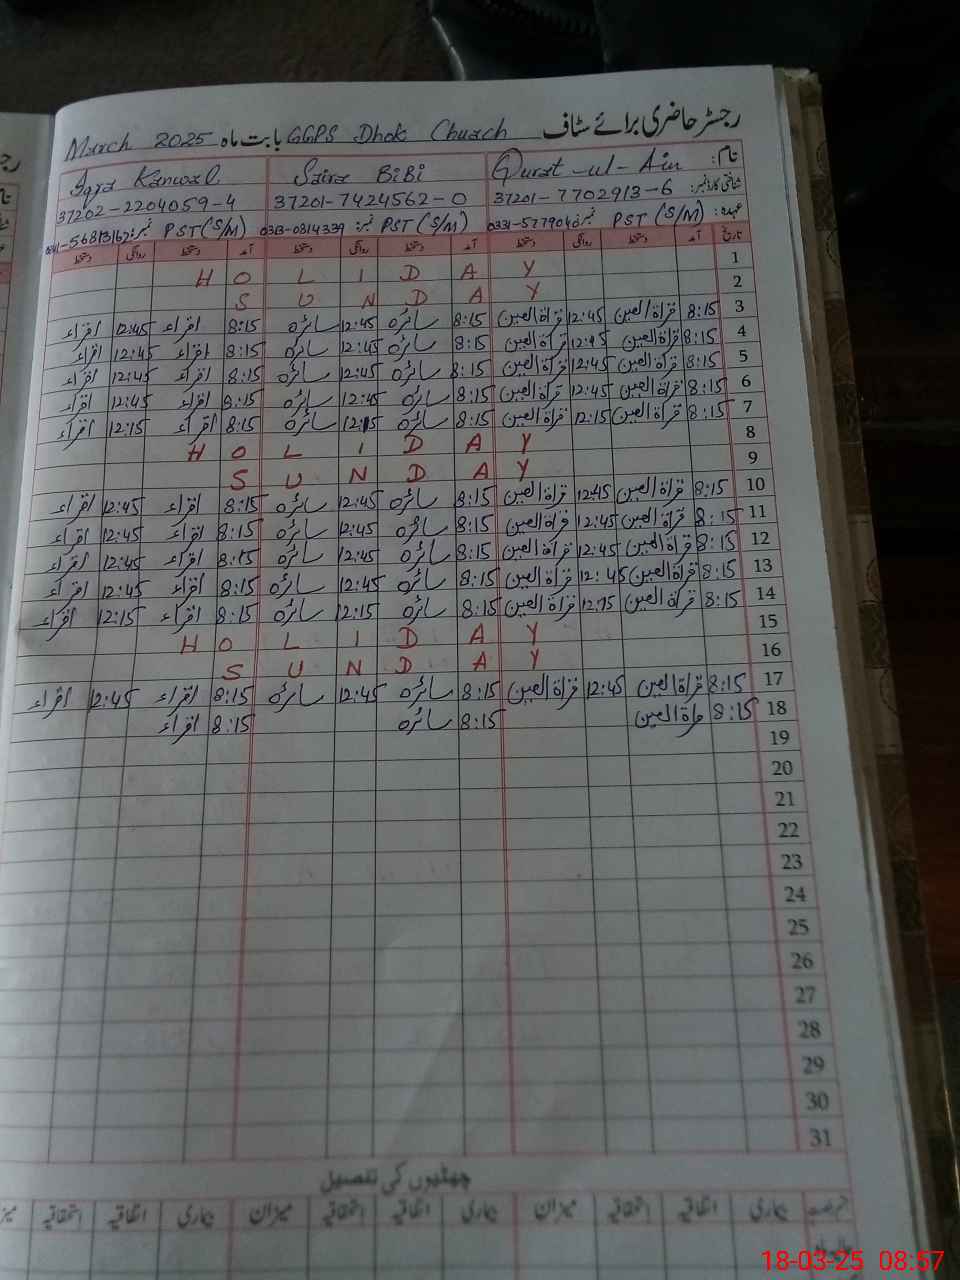 رجسٹر حاضری برائے سٹاف GGPS Dhok Church بابت ماہ March 2025
نام: Qurat-ul-Ain Saira BiBi Iqra Kanwal
شناختی کارڈ نمبر: 37201-7702913-6 37201-7424562-0 37202-2204059-4
عہدہ: PST (S/M) نمبر: PST (S/M) نمبر: 0313-0814339 PST (S/M) نمبر:
تاریخ آمد دستخط روانگی دستخط آمد دستخط روانگی دستخط آمد دستخط روانگی دستخط
1 H O L I D A Y
2 S U N D A Y
3 8:15 قراۃ العین 12:45 قراۃ العین 8:15 سائرہ 12:45 سائرہ 8:15 اقراء 12:45 اقراء
4 8:15 قراۃ العین 12:45 قراۃ العین 8:15 سائرہ 12:45 سائرہ 8:15 اقراء 12:45 اقراء
5 8:15 قراۃ العین 12:45 قراۃ العین 8:15 سائرہ 12:45 سائرہ 8:15 اقراء 12:45 اقراء
6 8:15 قراۃ العین 12:45 قراۃ العین 8:15 سائرہ 12:45 سائرہ 8:15 اقراء 12:45 اقراء
7 8:15 قراۃ العین 12:15 قراۃ العین 8:15 سائرہ 12:15 سائرہ 8:15 اقراء 12:15 اقراء
8 H O L I D A Y
9 S U N D A Y
10 8:15 قراۃ العین 12:45 قراۃ العین 8:15 سائرہ 12:45 سائرہ 8:15 اقراء 12:45 اقراء
11 8:15 قراۃ العین 12:45 قراۃ العین 8:15 سائرہ 12:45 سائرہ 8:15 اقراء 12:45 اقراء
12 8:15 قراۃ العین 12:45 قراۃ العین 8:15 سائرہ 12:45 سائرہ 8:15 اقراء 12:45 اقراء
13 8:15 قراۃ العین 12:45 قراۃ العین 8:15 سائرہ 12:45 سائرہ 8:15 اقراء 12:45 اقراء
14 8:15 قراۃ العین 12:15 قراۃ العین 8:15 سائرہ 12:15 سائرہ 8:15 اقراء 12:15 اقراء
15 H O L I D A Y
16 S U N D A Y
17 8:15 قراۃ العین 12:45 قراۃ العین 8:15 سائرہ 12:45 سائرہ 8:15 اقراء 12:45 اقراء
18 8:15 قراۃ العین 8:15 سائرہ 8:15 اقراء
19
20
21
22
23
24
25
26
27
28
29
30
31
چھٹیوں کی تفصیل
بیماری اتفاقیہ استحقاقیہ میزان بیماری اتفاقیہ استحقاقیہ میزان بیماری اتفاقیہ استحقاقیہ
18-03-25 08:57